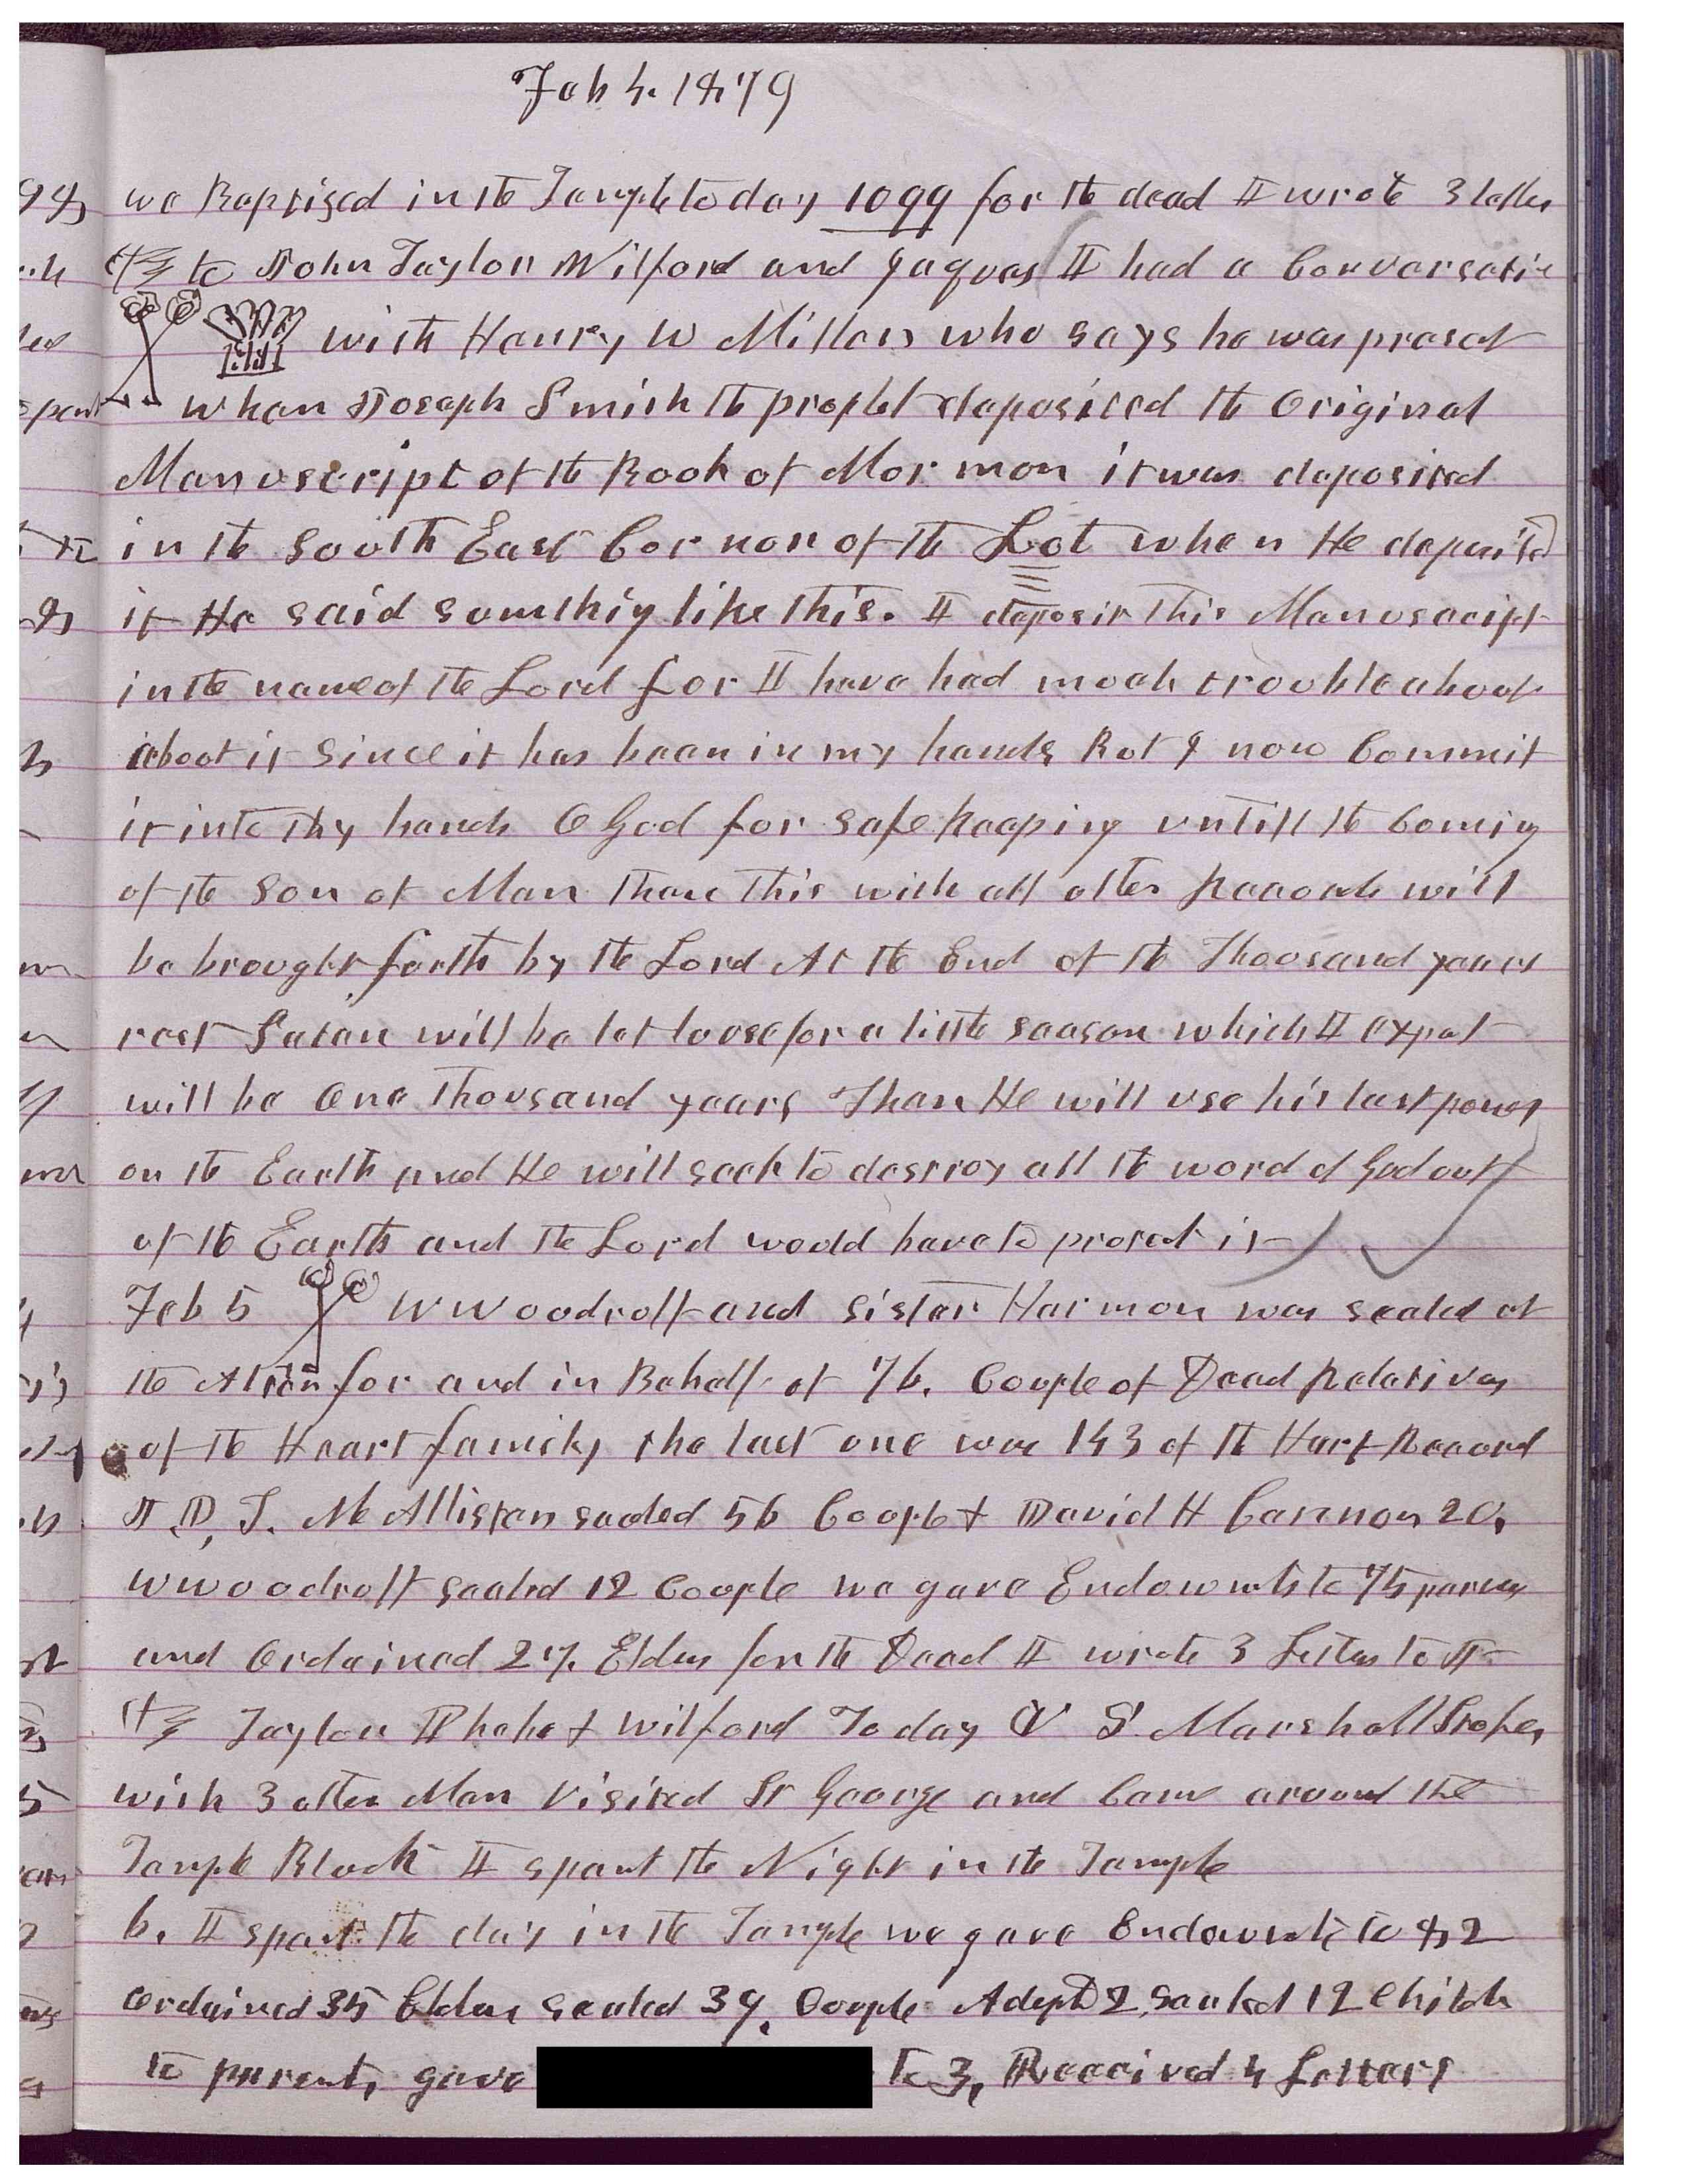 Feb 4. 1879
we Baptised in the Temple to day 1099 for the dead I wrote 3 letters
to John Taylor Wilford and Jaques I had a Conversation
with Henry W Miller who says he was present
when Joseph Smith the prophet deposited the Original
Manuscript of the Book of Mormon it was deposited
in the South East Corner of the Lot when He deposited
it He said somthing like this. I deposit This Manuscript
in the name of the Lord for I have had much trouble about
about it since it has been in my hands But I now Commit
it into thy hands O God for safe keeping untill the Coming
of the Son of Man Then This with all other Records will
be brought forth by the Lord At the End of the Thousand years
rest Satan will be let loose for a little season which I expect
will be One Thousand years Then He will use his last power
on the Earth and He will seek to destroy all the word of God out
of the Earth and the Lord would have to protect it
Feb 5 W Woodruff and Sister Harmon was sealed at
the Alter for and in Behalf of 76. Couple of Dead Relatives
of the Heart family the last one was 143 of the Hart Record
J. D. T. McAllister sealed 56 Couple & David H Cannon 20,
W Woodruff sealed 12 Couple we gave Endowments to 75 persons
and Ordained 27. Elders for the Dead I wrote 3 Letters to J
Taylor Phebe & Wilford To day U S. Marshall Stokes,
with 3 other Men Visited St George and Came around the
Temple Block I spent the Night in the Temple
6. I spent the day in the Temple we gave Endowments to 82
Ordained 35 Elders sealed 39, Couple Adopted 2, sealed 12 Childn
to parents, gave to 3, Received 4 Letters